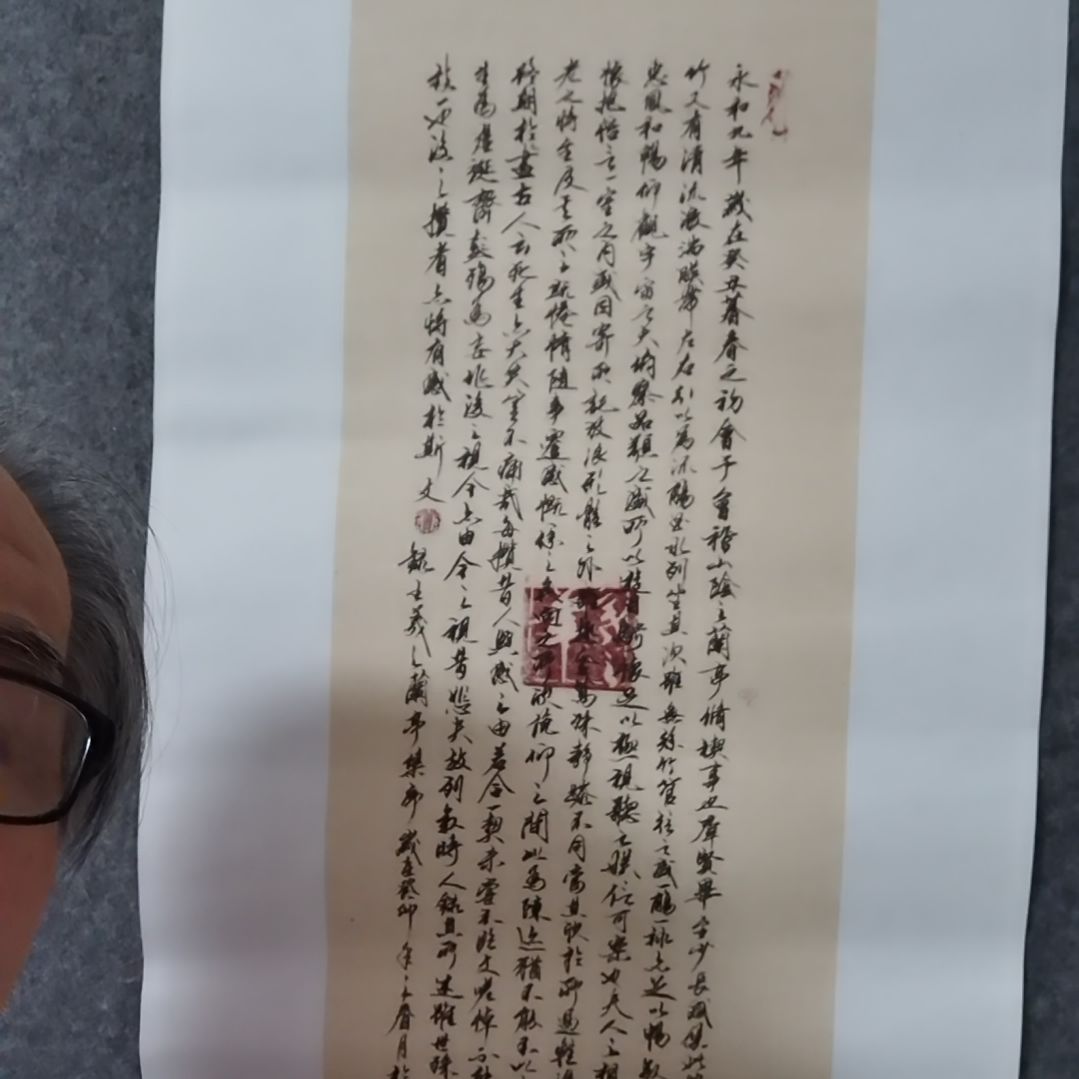 永和九年歲在癸丑暮春之初會于會稽山陰之蘭亭脩禊事也羣賢畢至少長咸集此
竹又有清流激湍暎帶左右引以為流觴曲水列坐其次雖無絲竹管弦之盛一觴一詠亦足以暢敘
惠風和暢仰觀宇宙之大俯察品類之盛所以遊目騁懷足以極視聽之娛信可樂也夫人之相
懷抱悟言一室之內或因寄所託放浪形骸之外雖趣舍萬殊靜躁不同當其欣於所遇暫
老之將至及其所之既惓情隨事遷感慨係之矣向之所欣俛仰之間以為陳迹猶不能不以
終期於盡古人云死生亦大矣豈不痛哉每攬昔人興感之由若合一契未嘗不臨文嗟悼不能
生為虛誕齊彭殤為妄作後之視今亦由今之視昔悲夫故列敘時人錄其所述雖世殊
致一也後之攬者亦將有感於斯文
錄王羲之蘭亭集序歲在癸卯年之月於